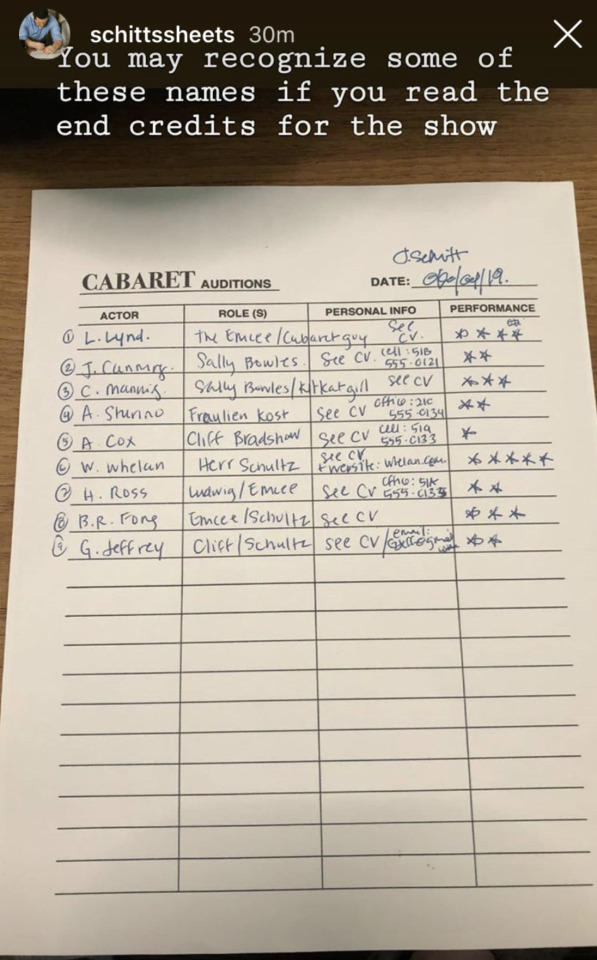 schittssheets 30m
You may recognize some of
these names if you read the
end credits for the show
J. Schitt
CABARET AUDITIONS DATE: /19.
ACTOR ROLE (S) PERSONAL INFO PERFORMANCE
① L. Lynd. The Emcee/Cabaret guy See CV.
② J. Sally Bowles. See CV. cell: 518 555-0121
③ C. Sally Bowles/Kitkatgirl see CV
④ A. Fraulien Kost See CV office: 210 555-0134
⑤ A. Cox Cliff Bradshaw See CV cell: 519 555-0133
⑥ W. Whelan Herr Schultz See CV + website: whelan.com
⑦ H. Ross Ludwig/Emcee See CV 555-0133
⑧ B.R. Fong Emcee/Schultz see CV
⑨ G. Jeffrey Cliff/Schultz see CV/email: